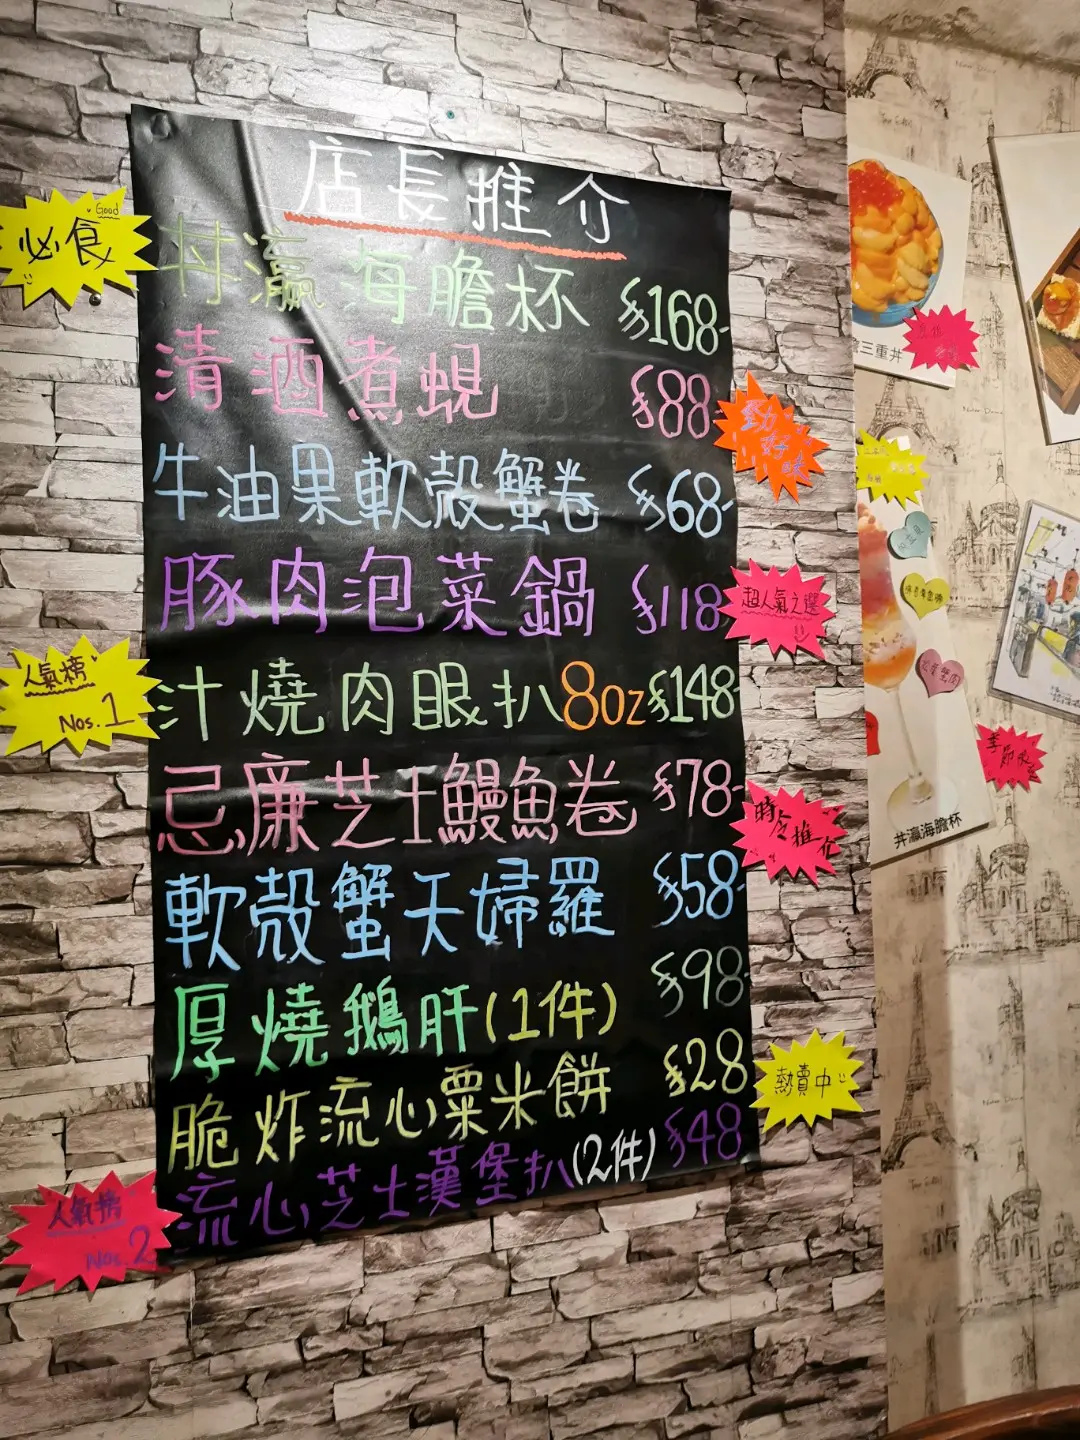 店長推介
Good
必食
井瀛海膽杯 $168-
清酒煮蜆 $88-
勁好味
牛油果軟殼蟹卷 $68-
豚肉泡菜鍋 $118
超人氣之選
人氣榜
Nos.1
汁燒肉眼扒8oz $148-
忌廉芝士鰻魚卷 $78-
時令推介
軟殼蟹天婦羅 $58-
厚燒鵝肝(1件) $98-
脆炸流心粟米餅 $28
熱賣中
流心芝士漢堡扒(2件) $48
人氣榜
Nos.2
三重丼
松葉蟹肉
井瀛海膽杯